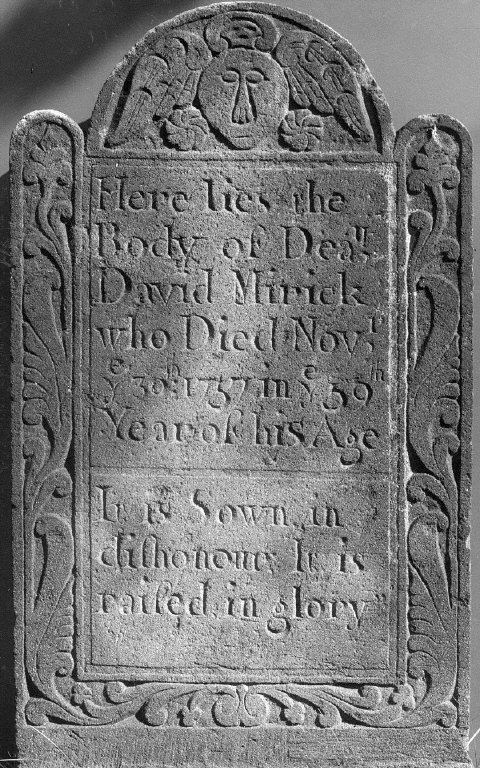 Here lies the
Body of Deaⁿ.
David Mirick
who Died Novʳ.
yᵉ 30ᵗʰ. 1757. in yᵉ 59ᵗʰ
Year of his Age
It is Sown in
diſhonour; It is
raiſed in glory"